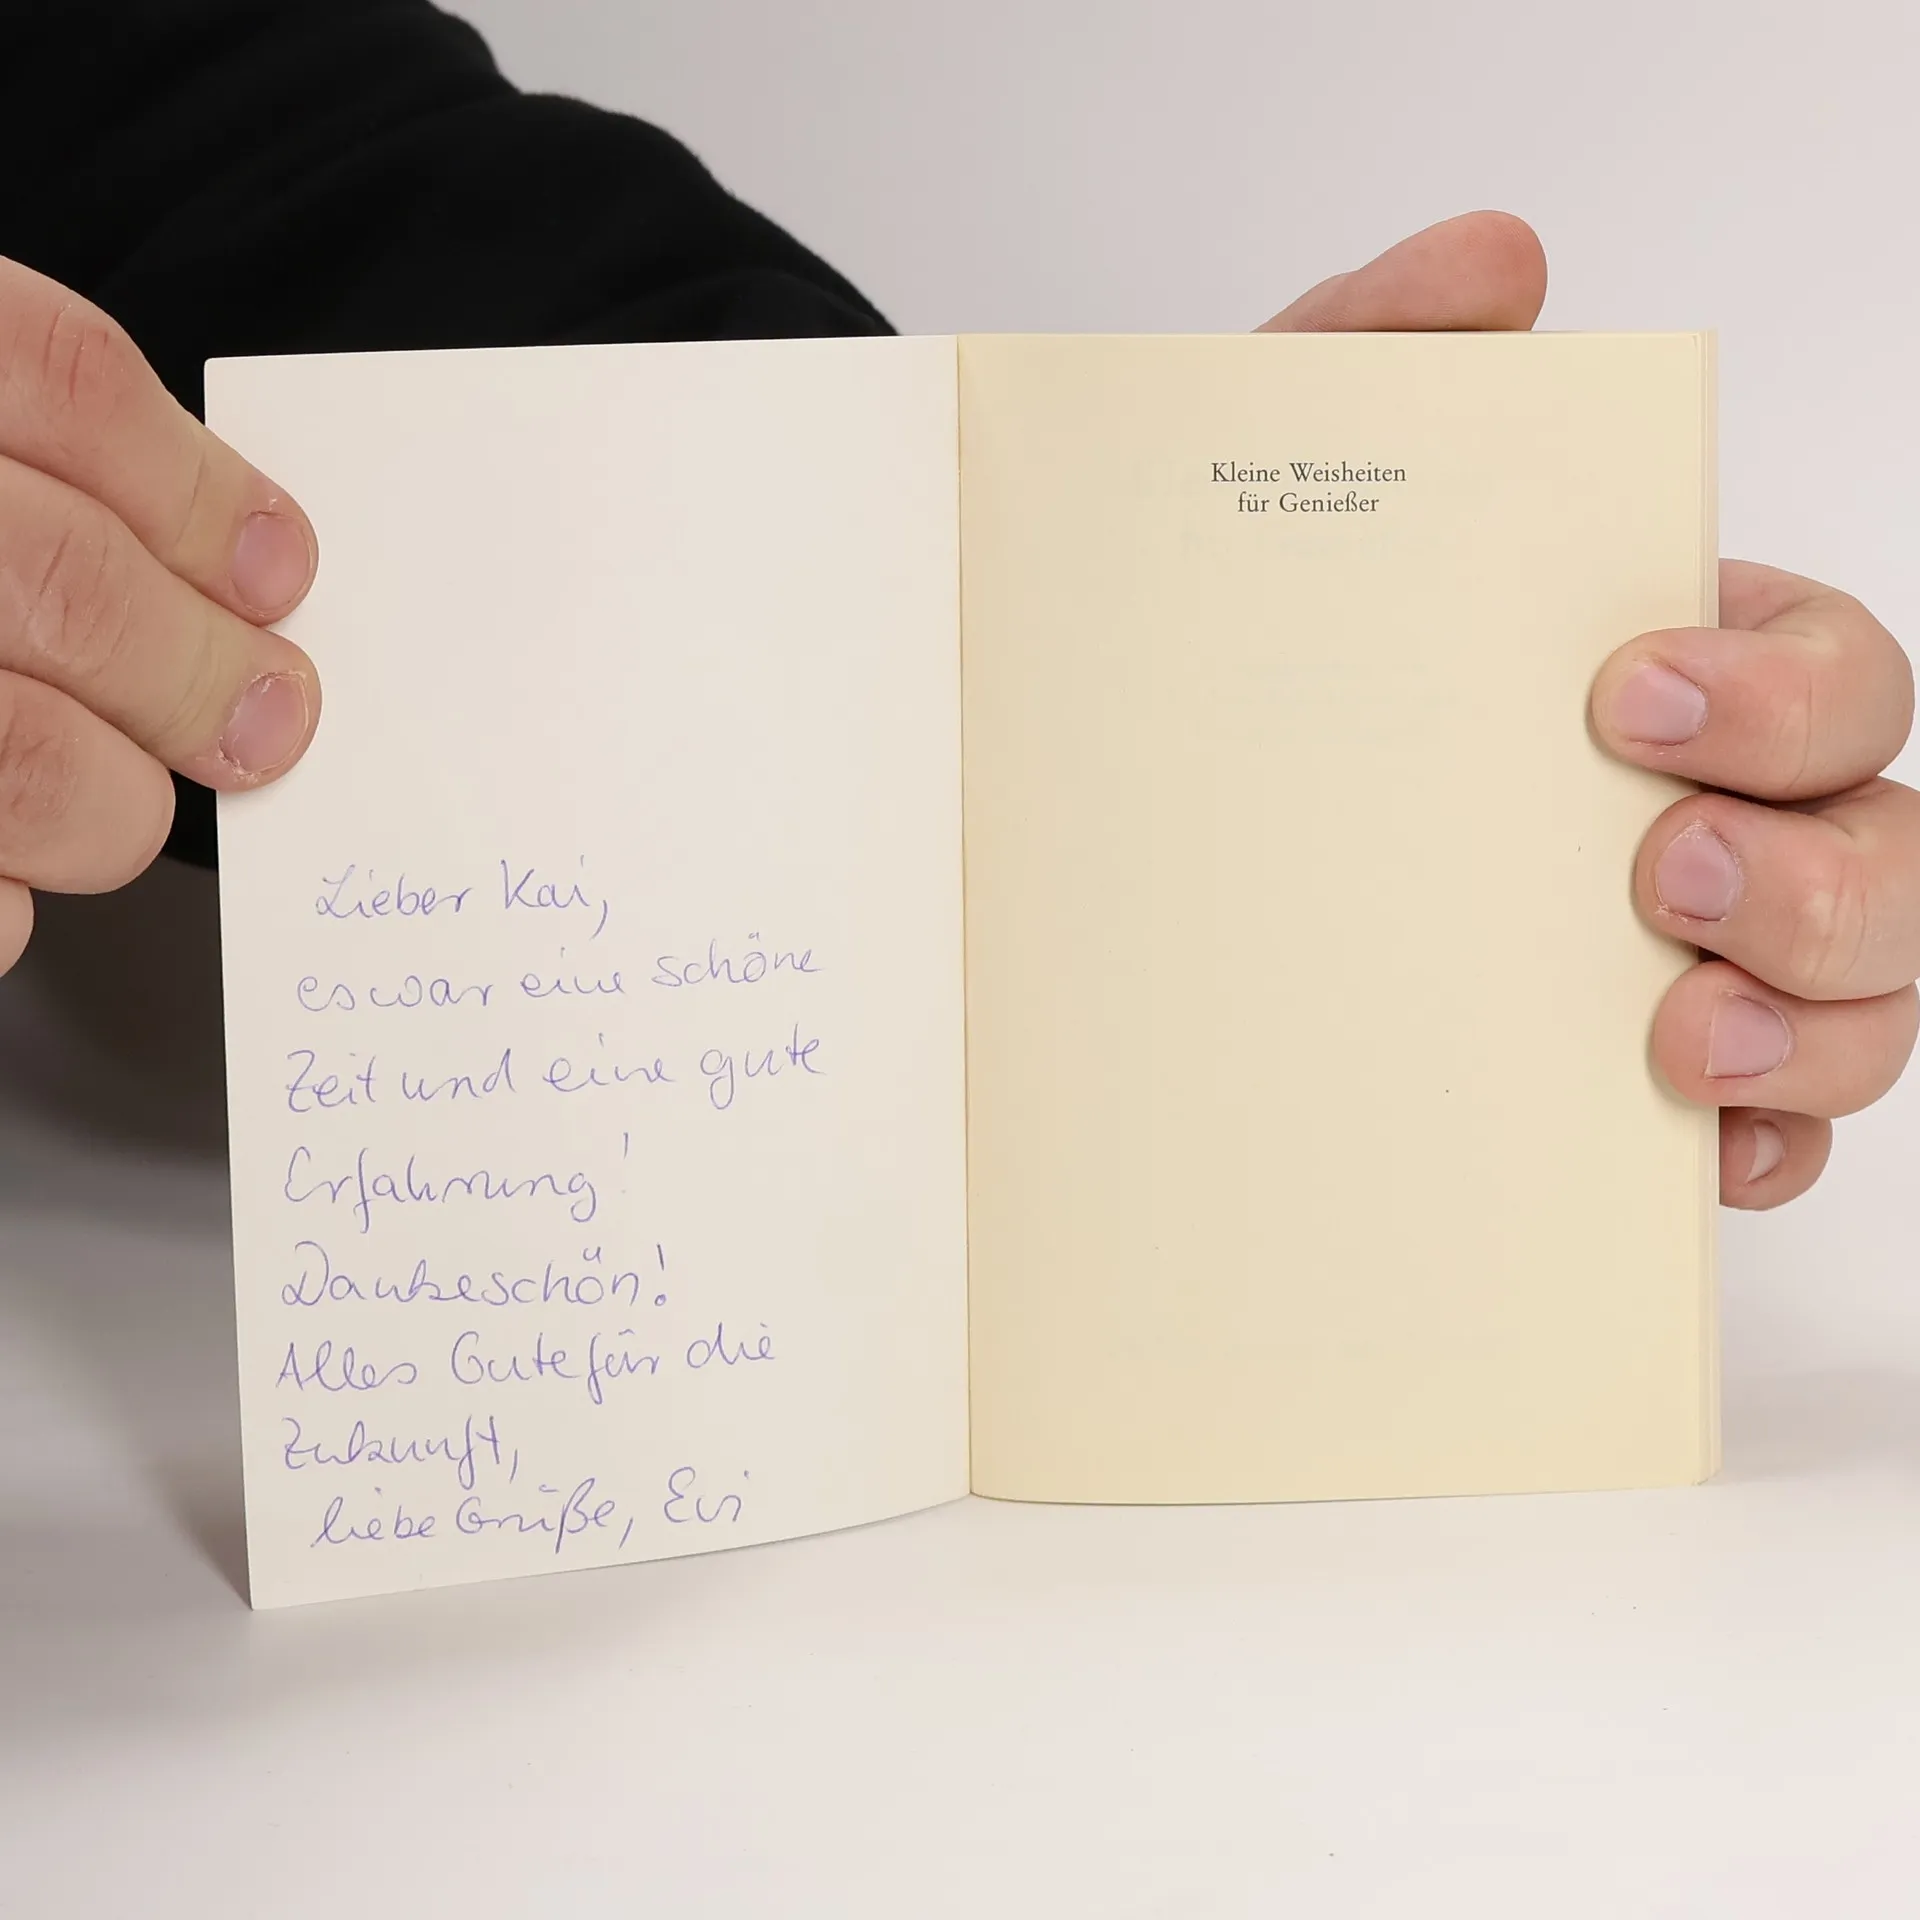 Lieber Kai,
es war eine schöne
Zeit und eine gute
Erfahrung!
Dankeschön!
Alles Gute für die
Zukunft,
liebe Grüße, Evi
Kleine Weisheiten
für Genießer